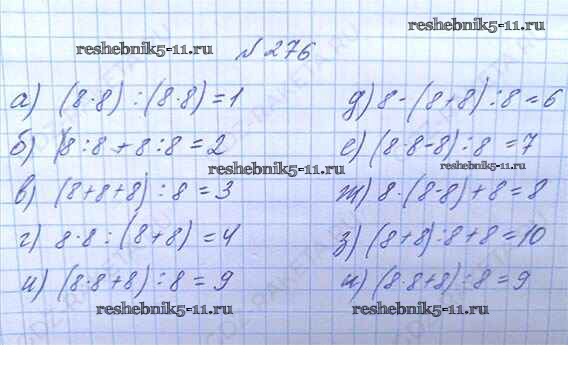 reshebnik5-11.ru
№ 276
reshebnik5-11.ru
а) (8·8) : (8·8) = 1
д) 8 - (8+8) : 8 = 6
б) 8 : 8 + 8 : 8 = 2
е) (8·8-8) : 8 = 7
reshebnik5-11.ru
reshebnik5-11.ru
в) (8+8+8) : 8 = 3
ж) 8·(8-8)+8=8
г) 8·8 : (8+8) = 4
з) (8+8):8+8=10
и) (8·8+8) : 8 = 9
и) (8·8+8) : 8 = 9
reshebnik5-11.ru
reshebnik5-11.ru